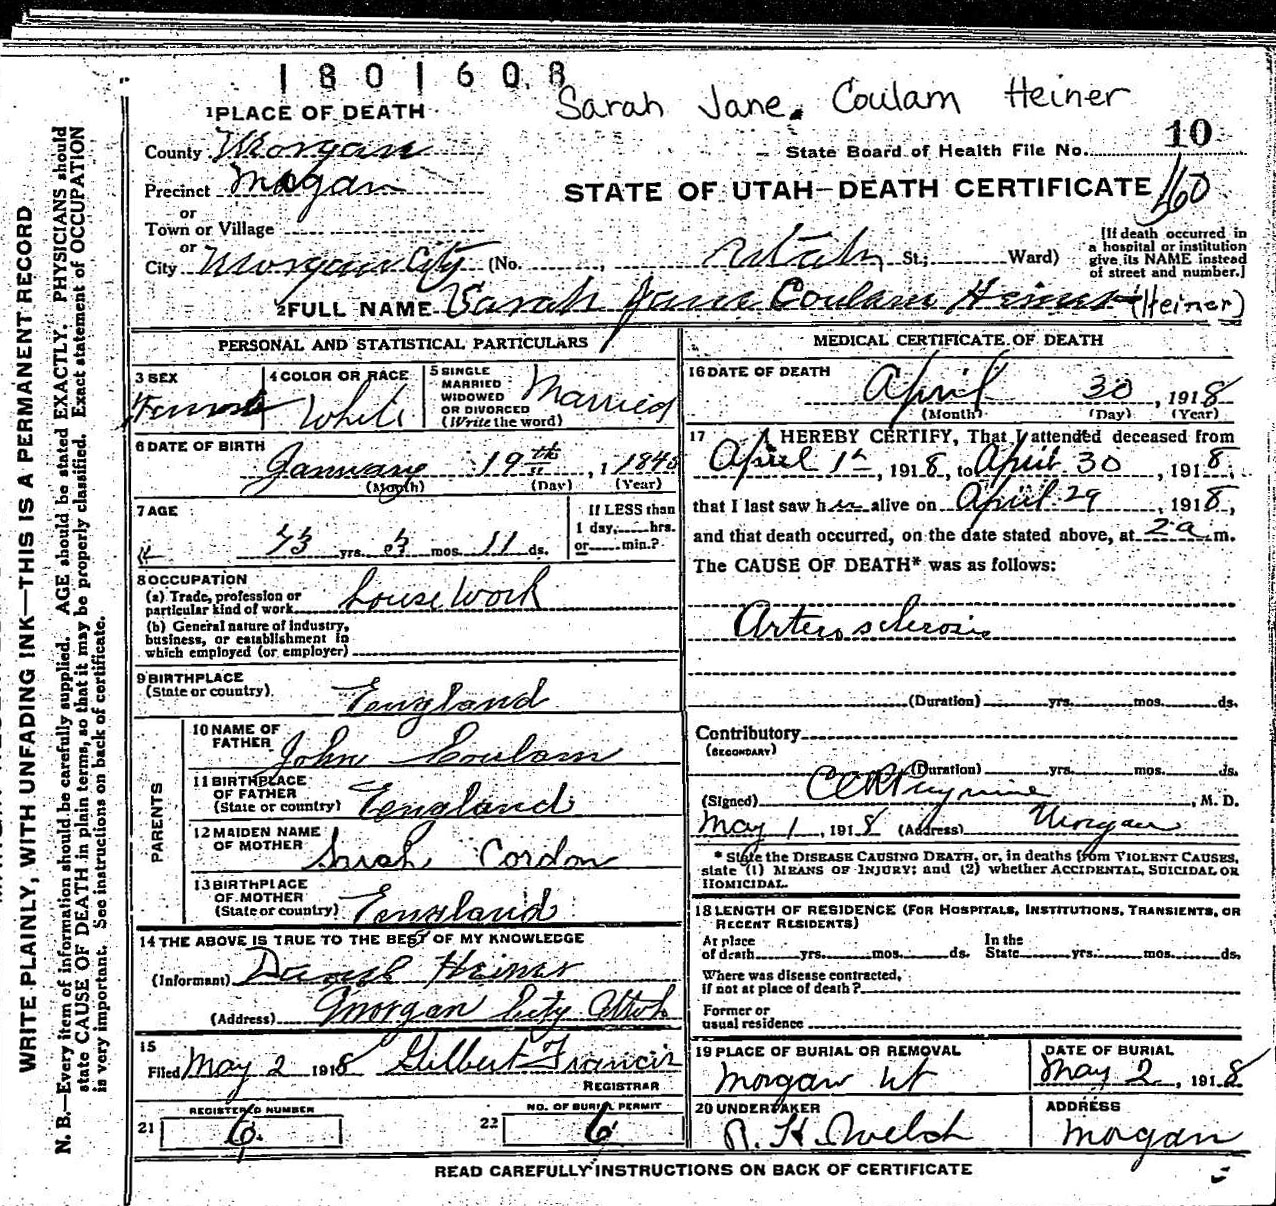 1801608
Sarah Jane Coulam Heiner
1 PLACE OF DEATH
10
County Morgan
State Board of Health File No.
Precinct Morgan
STATE OF UTAH—DEATH CERTIFICATE 160
or
Town or Village
or
City Morgan City (No. , Utah St.; Ward)
[If death occurred in
a hospital or institution
give its NAME instead
of street and number.]
2 FULL NAME Sarah Jane Coulam Heiner (Heiner)
PERSONAL AND STATISTICAL PARTICULARS
3 SEX
Female
4 COLOR OR RACE
White
5 SINGLE
MARRIED
WIDOWED
OR DIVORCED
(Write the word)
Married
6 DATE OF BIRTH
January 19th, 1
(Month) (Day) (Year)
7 AGE
73 yrs. 3 mos. 11 ds.
If LESS than
1 day, hrs.
or min.?
8 OCCUPATION
(a) Trade, profession or
particular kind of work House Work
(b) General nature of industry,
business, or establishment in
which employed (or employer)
9 BIRTHPLACE
(State or country) England
PARENTS
10 NAME OF
FATHER John Coulam
11 BIRTHPLACE
OF FATHER
(State or country) England
12 MAIDEN NAME
OF MOTHER Sarah Cordon
13 BIRTHPLACE
OF MOTHER
(State or country) England
14 THE ABOVE IS TRUE TO THE BEST OF MY KNOWLEDGE
(Informant) Daniel Heiner
(Address) Morgan City Utah
15
Filed May 2 1918 Gilbert Francis
REGISTRAR
21 REGISTERED NUMBER
6
22 NO. OF BURIAL PERMIT
6
MEDICAL CERTIFICATE OF DEATH
16 DATE OF DEATH
April 30, 1918
(Month) (Day) (Year)
17 I HEREBY CERTIFY, That I attended deceased from
April 1st, 1918, to April 30, 1918,
that I last saw her alive on April 29, 1918,
and that death occurred, on the date stated above, at 2 a m.
The CAUSE OF DEATH* was as follows:
Arterosclerosis
(Duration) yrs. mos. ds.
Contributory
(SECONDARY)
(Duration) yrs. mos. ds.
(Signed) , M. D.
May 1, 1918 (Address) Morgan
* State the DISEASE CAUSING DEATH, or, in deaths from VIOLENT CAUSES,
state (1) MEANS OF INJURY; and (2) whether ACCIDENTAL, SUICIDAL OR
HOMICIDAL.
18 LENGTH OF RESIDENCE (FOR HOSPITALS, INSTITUTIONS, TRANSIENTS, OR
RECENT RESIDENTS)
At place
of death yrs. mos. ds.
In the
State yrs. mos. ds.
Where was disease contracted,
if not at place of death?
Former or
usual residence
19 PLACE OF BURIAL OR REMOVAL
Morgan Ut
DATE OF BURIAL
May 2, 1918
20 UNDERTAKER
Welch
ADDRESS
Morgan
READ CAREFULLY INSTRUCTIONS ON BACK OF CERTIFICATE
WRITE PLAINLY, WITH UNFADING INK—THIS IS A PERMANENT RECORD
N. B.—Every item of information should be carefully supplied. AGE should be stated EXACTLY. PHYSICIANS should
state CAUSE OF DEATH in plain terms, so that it may be properly classified. Exact statement of OCCUPATION
is very important. See instructions on back of certificate.